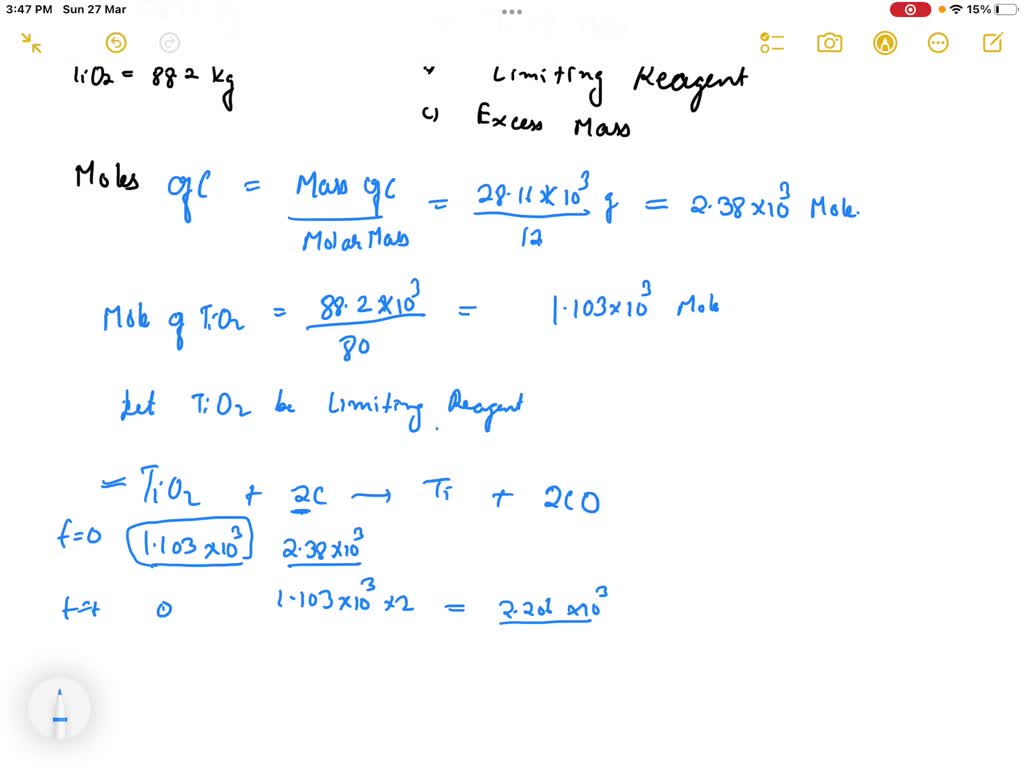 3:47 PM Sun 27 Mar 15%
TiO2 = 88.2 kg Limiting Reagent
c) Excess Mass
Moles of C = Mass of C / Molar Mass = 28.11 × 10^3 g / 12 = 2.38 × 10^3 Mole.
Mole of TiO2 = 88.2 × 10^3 / 80 = 1.103 × 10^3 Mole
Let TiO2 be Limiting Reagent
= TiO2 + 2C → Ti + 2CO
t=0 1.103 × 10^3 2.38 × 10^3
t=t 0 1.103 × 10^3 × 2 = 2.206 × 10^3